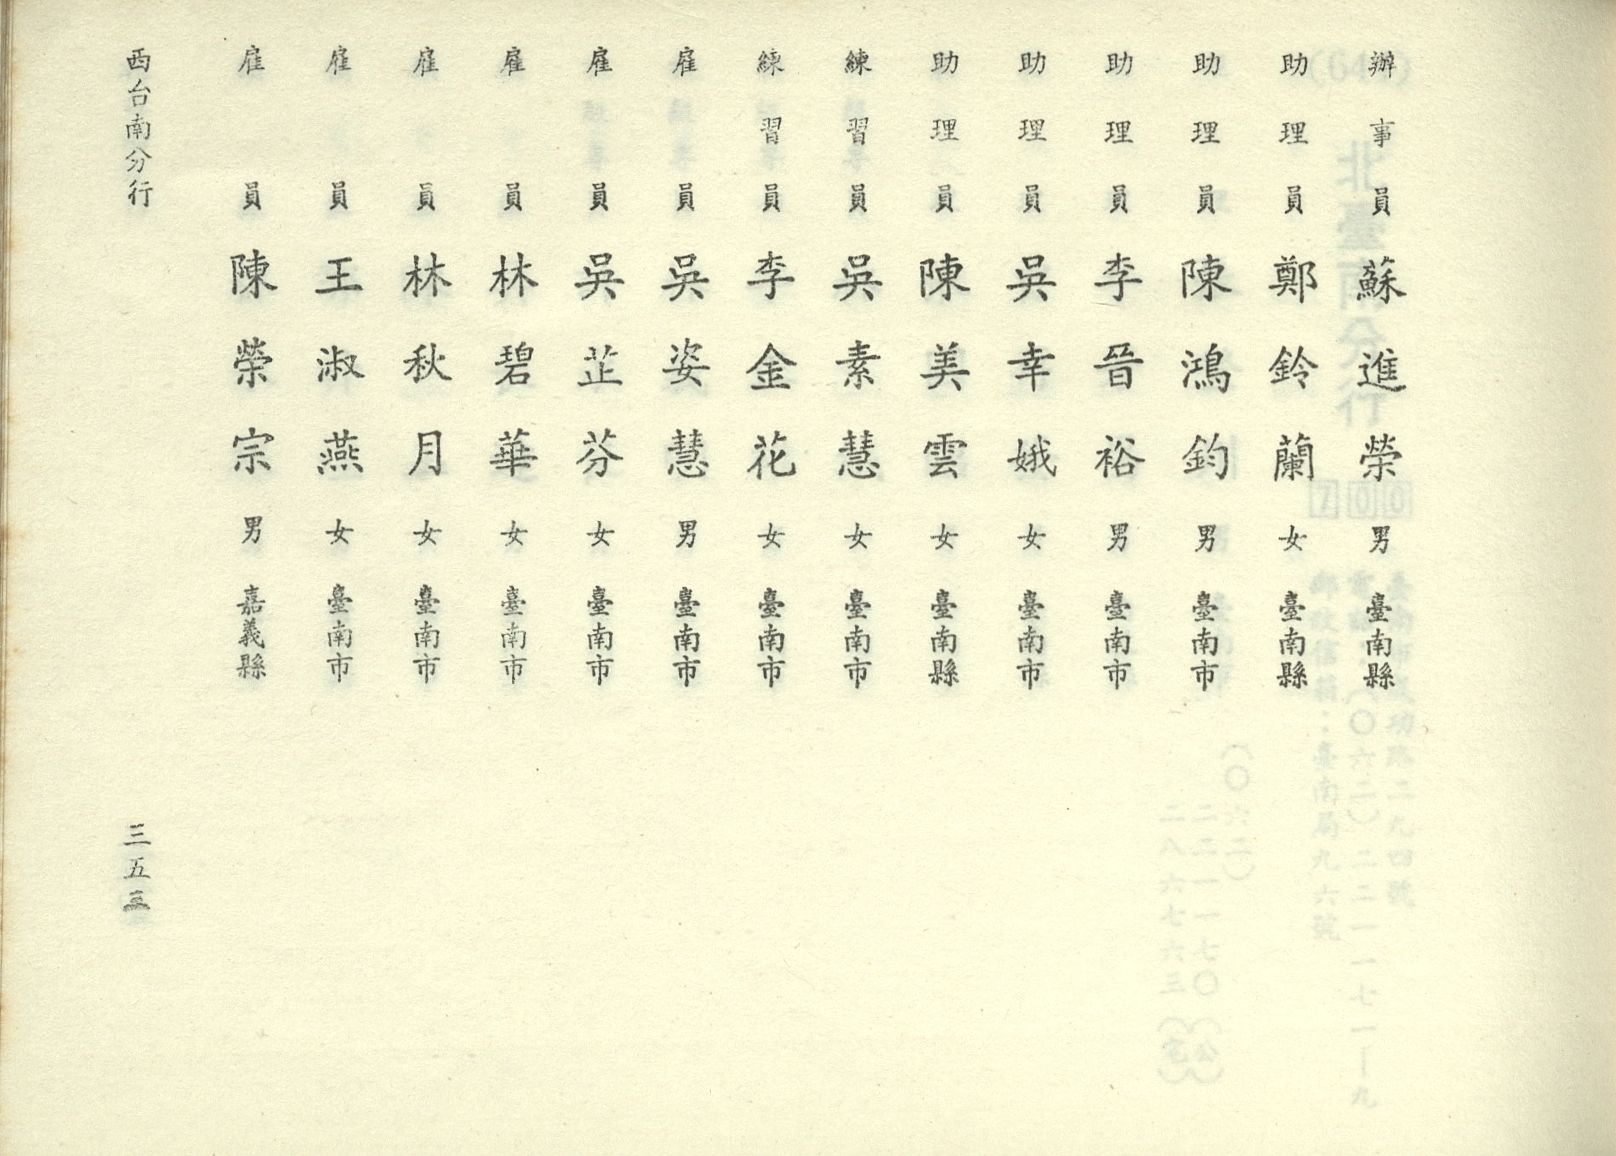 辦事員蘇進榮男臺南縣
助理員鄭鈴蘭女臺南縣
助理員陳鴻鈞男臺南市
助理員李晉裕男臺南市
助理員吳幸娥女臺南市
助理員陳美雲女臺南縣
練習員吳素慧女臺南市
練習員李金花女臺南市
雇員吳姿慧男臺南市
雇員吳芷芬女臺南市
雇員林碧華女臺南市
雇員林秋月女臺南市
雇員王淑燕女臺南市
雇員陳榮宗男嘉義縣
西台南分行
三五三